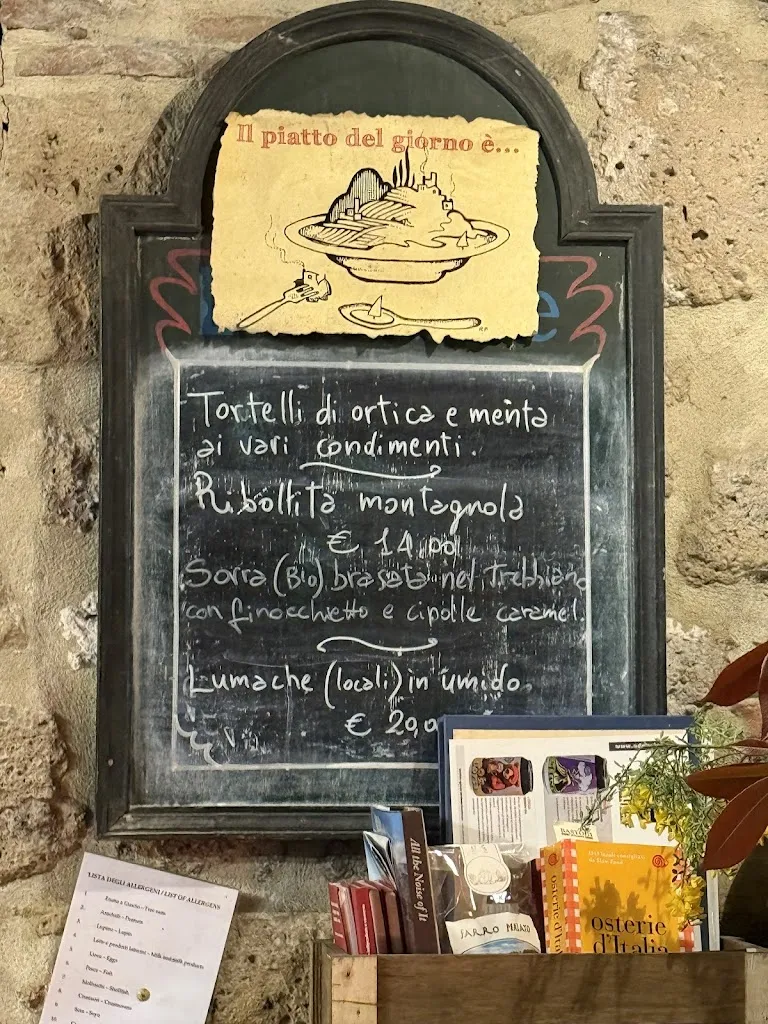 Il piatto del giorno è...
Tortelli di ortica e menta
ai vari condimenti.
Ribollita montagnola
€ 14,00
Sorra (Bio) brasata nel Trebbiano
con finocchietto e cipolle caramel.
Lumache (locali) in umido
€ 20,0
LISTA DEGLI ALLERGENI / LIST OF ALLERGENS
Frutta a Guscio - Tree nuts
Arachidi - Peanuts
Lupini - Lupin
Latte e prodotti lattiero - Milk and milk products
Uova - Eggs
Pesce - Fish
Molluschi - Shellfish
Crostacei - Crustaceans
Soia - Soya
All the Noise of It
FARRO MALATO
osterie d'Ita
osterie
d'Italia